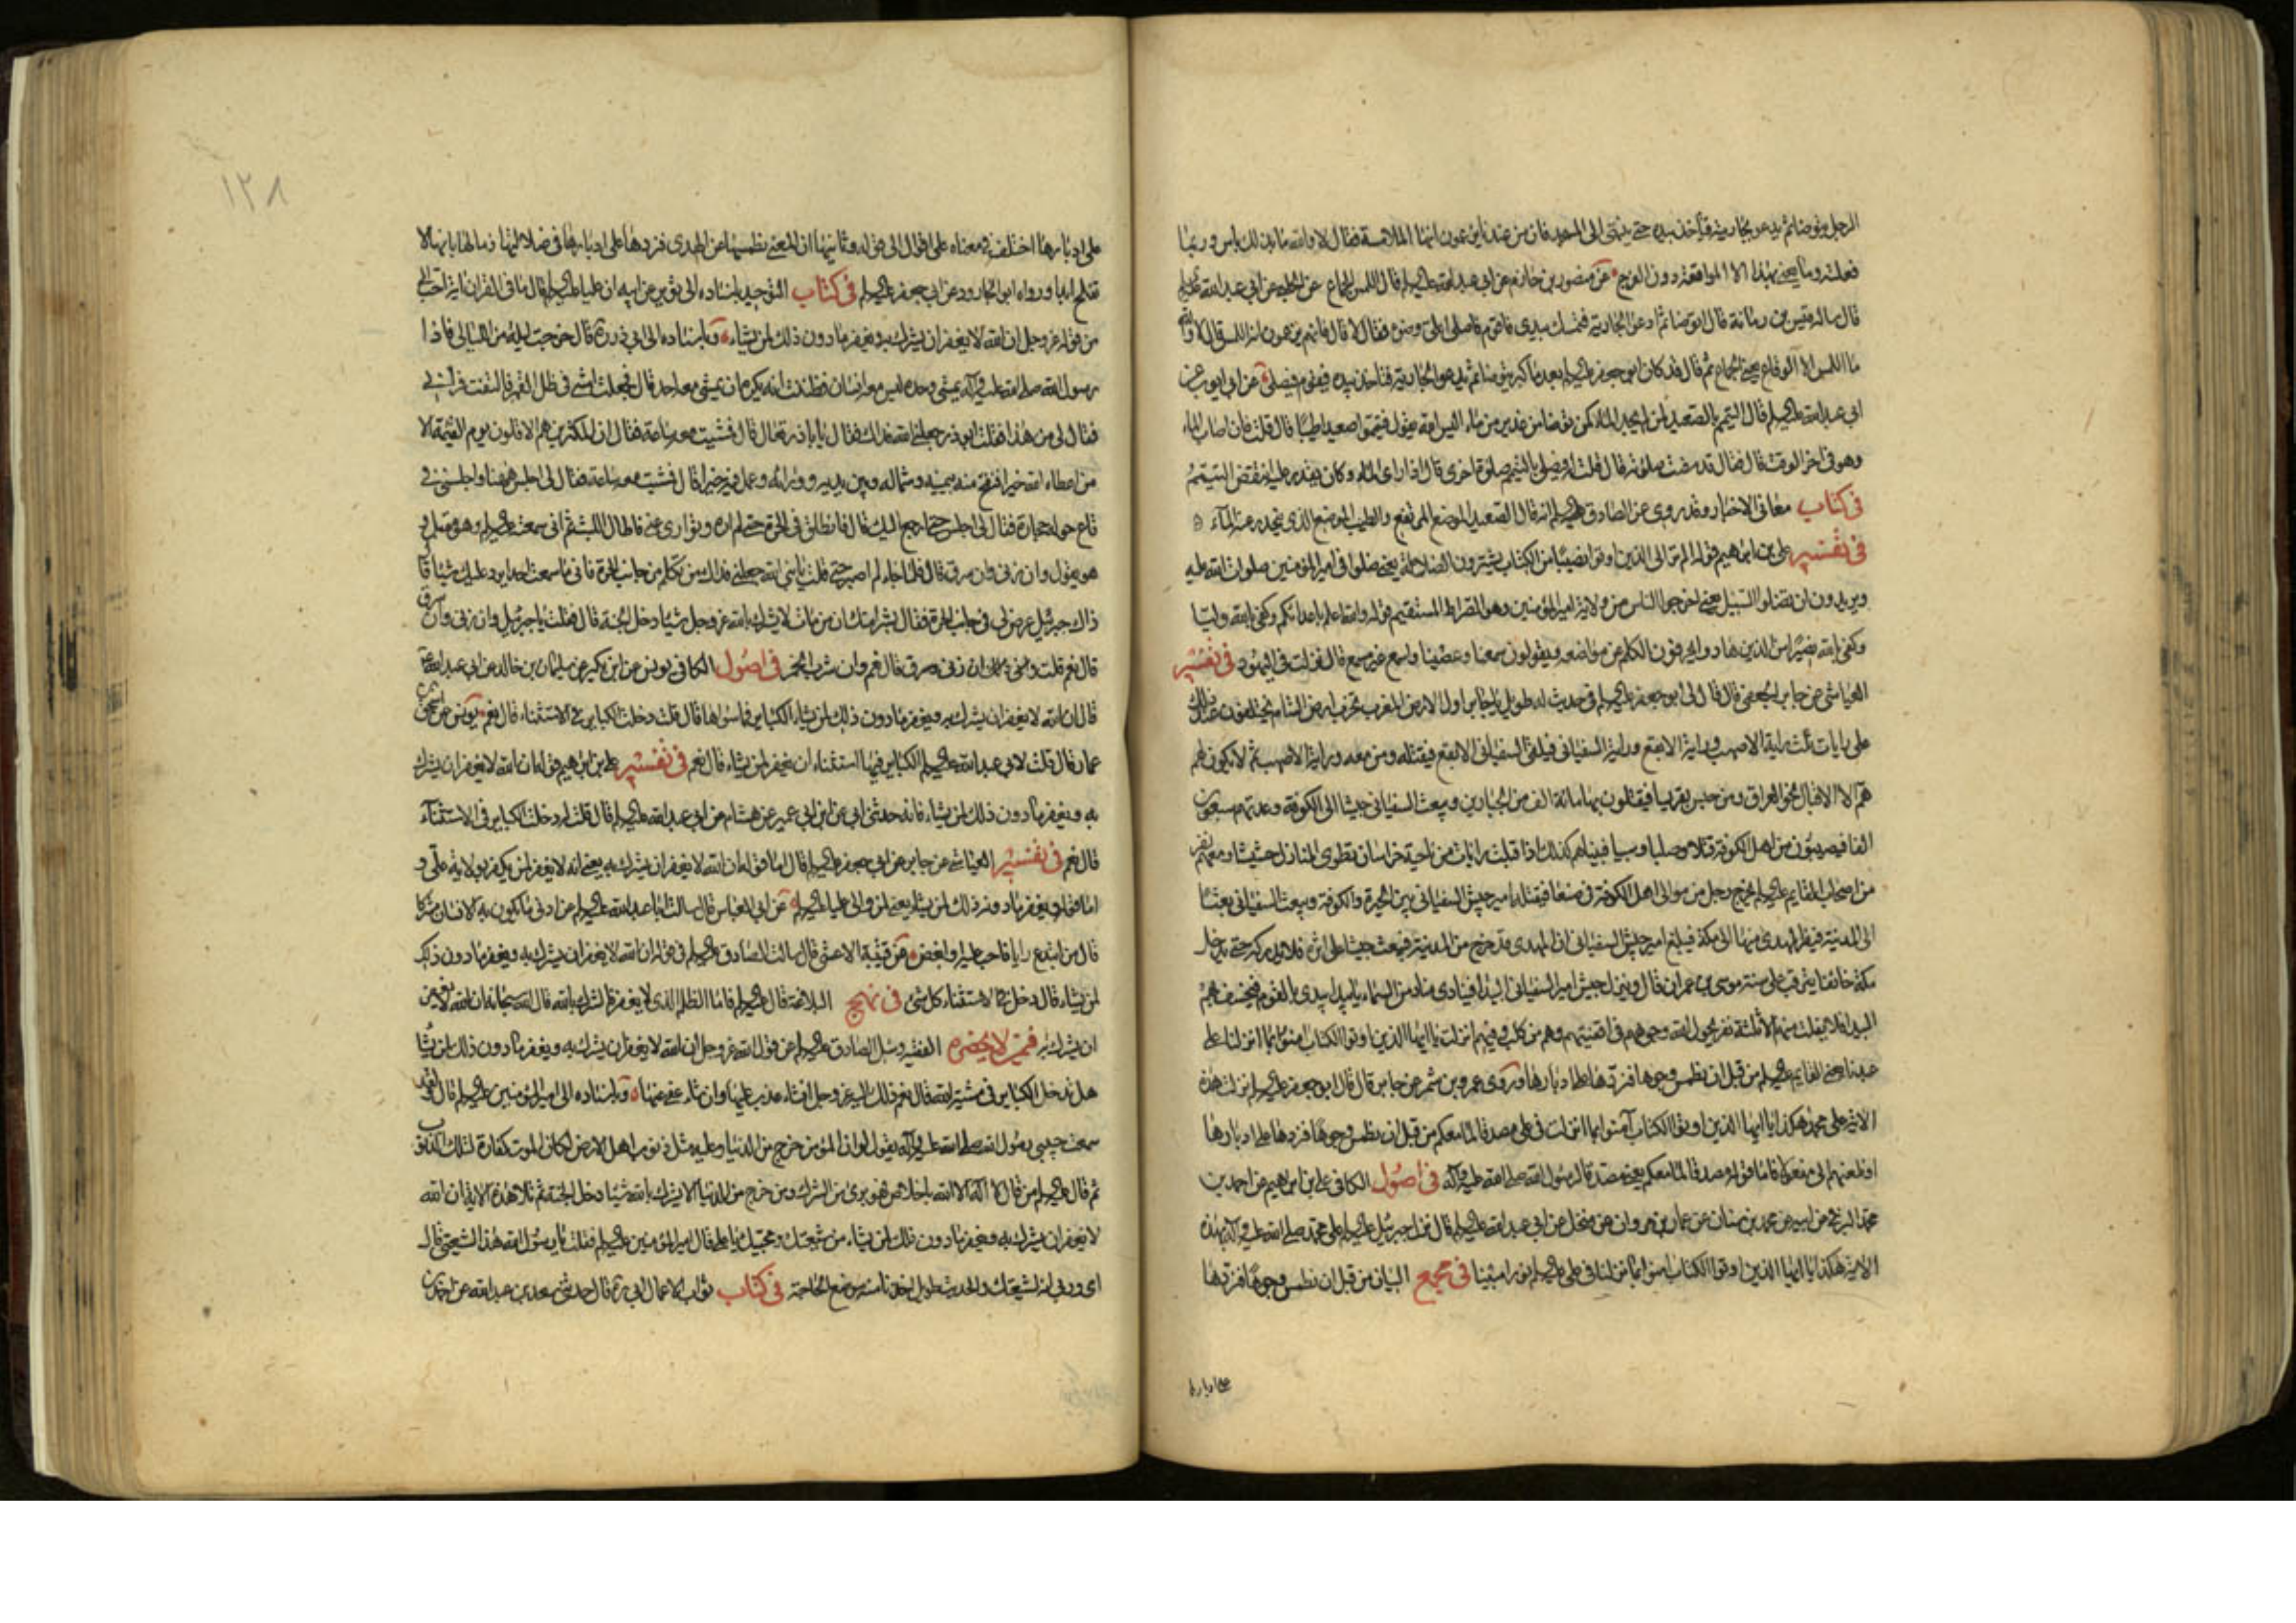 الرجل يتوضأ ثم يدعو بجاريته فتأخذ بيده حتى ينتهى الى المسجد فان من عندنا يزعمون انها الملامسة فقال لا والله ما بذلك باس وربما
فعلته وما يعنى بهذا الا المواقعة دون الفرج عن منصور بن حازم عن ابى عبد الله عليه السلم قال اللمس الجماع عن الحلبى عن ابى عبد الله عليه السلم
قال ساله قيس بن رمانة قال اتوضأ ثم ادعو الجارية فتمسك بيدى فاقوم فاصلى اعلى وضوء فقال لا قال فانهم يزعمون انه اللمس قال لا والله
ما اللمس الا الوقاع يعنى الجماع ثم قال قد كان ابو جعفر عليه السلم بعد ما كبر يتوضأ ثم يدعو الجارية فتاخذ بيده فيقوم فيصلى عن ابى ايوب عن
ابى عبد الله عليه السلم قال التيمم بالصعيد لمن لم يجد الماء كمن توضأ من غدير من ماء اليس الله يقول فتيمموا صعيدا طيبا قال قلت فان اصاب الماء
وهو فى اخر الوقت قال فقال قد مضت صلوته قال قلت له فيصلى بالتيمم صلوة اخرى قال اذا راى الماء وكان يقدر عليه انتقض التيمم
فى كتاب معانى الاخبار وقد روى عن الصادق عليه السلم انه قال الصعيد الموضع المرتفع والطيب الموضع الذى ينحدر عنه الماء
فى تفسير على بن ابرهيم قوله الم تر الى الذين اوتوا نصيبا من الكتاب يشترون الضلالة يعنى ضلوا فى امير المؤمنين صلوات الله عليه
ويريدون ان تضلوا السبيل يعنى اخرجوا الناس من ولاية امير المؤمنين وهو الصراط المستقيم قوله والله اعلم باعدائكم وكفى بالله وليا
وكفى بالله نصيرا من الذين هادوا يحرفون الكلم عن مواضعه ويقولون سمعنا وعصينا واسمع غير مسمع قال نزلت فى اليهود فى تفسير
العياشى عن جابر الجعفى قال قال لى ابو جعفر عليه السلم فى حديث له طويل يا جابر اول الارض المغرب تخرب ارض الشام يختلفون عند ذلك
على رايات ثلث راية الاصهب وراية الابقع وراية السفيانى فيلقى السفيانى الابقع فيقتله ومن معه وراية الاصهب ثم لا يكون لهم
هم الا الاقبال نحو العراق ومن جيس بقرقيسا فيقتلون بها مائة الف من الجبارين ويبعث السفيانى جيشا الى الكوفة وعدتهم سبعون
الفا فيصيبون من اهل الكوفة قتلا وصلبا وسبيا فبيناهم كذلك اذ اقبلت رايات من ناحية خراسان تطوى المنازل حثيثا ومعهم نفر
من اصحاب القايم عليه السلم يخرج رجل من موالى اهل الكوفة فى ضعفا فيقتله امير جيش السفيانى بين الحيرة والكوفة ويبعث السفيانى بعثا
الى المدينة فيفر المهدى منها الى مكة فيبلغ امير جيش السفيانى ان المهدى قد خرج من المدينة فيبعث جيشا على اثره فلا يدركه حتى يدخل
مكة خائفا يترقب على سنة موسى بن عمران قال وينزل جيش امير السفيانى البيدا فينادى مناد من السماء يا بيدا ابيدى بالقوم فيخسف بهم
البيدا فلا يفلت منهم الا ثلثة نفر يحول الله وجوههم فى اقفيتهم وهم من كلب وفيهم انزلت يا ايها الذين اوتوا الكتاب امنوا بما انزلنا على
عبدنا يعنى القايم عليه السلم من قبل ان نطمس وجوها فنردها على ادبارها وروى عمرو بن شمر عن جابر قال قال ابو جعفر عليه السلم نزلت هذه
الاية على محمد هكذا يا ايها الذين اوتوا الكتاب آمنوا بما انزلت فى على مصدقا لما معكم من قبل ان نطمس وجوها فنردها على ادبارها
او نلعنهم الى مفعولا فاما قوله مصدقا لما معكم يعنى مصدقا لرسول الله صلى الله عليه وآله فى اصول الكافى على بن ابراهيم عن احمد بن
محمد البرقى عن ابيه عن محمد بن سنان عن عمار بن مروان عن منخل عن ابى عبد الله عليه السلم قال نزل جبرئيل عليه السلم على محمد صلى الله عليه وآله بهذه
الاية هكذا يا ايها الذين اوتوا الكتاب امنوا بما نزلنا فى على عليه السلم نورا مبينا فى مجمع البيان من قبل ان نطمس وجوها فنردها
على ادبارها
١٢٨
على ادبارها اختلف فى معناه على اقوال الى قوله وثانيها ان المعنى نطمسها عن الهدى فنردها على ادبارها فى ضلالتها ذما لها بانها لا
تفلح ابدا ورواه ابو الجارود عن ابى جعفر عليه السلم فى كتاب التوحيد باسناده الى ثوير عن ابيه ان عليا عليه السلم قال ما فى القران اية احب الى
من قوله عز وجل ان الله لا يغفر ان يشرك به ويغفر ما دون ذلك لمن يشاء وباسناده الى ابى ذر ره قال خرجت ليلة من الليالى فاذا
رسول الله صلى الله عليه وآله يمشى وحده ليس معه انسان فظننت انه يكره ان يمشى معه احد قال فجعلت امشى فى ظل القمر فالتفت فرآنى
فقال لى من هذا فقلت ابو ذر جعلنى الله فداك فقال يا باذر تعال قال فمشيت معه ساعة فقال ان المكثرين هم الاقلون يوم القيمة الا
من اعطاه الله خيرا فنفخ منه بيمينه وشماله وبين يديه وورائه وعمل فيه خيرا قال فمشيت معه ساعة فقال لى اجلس ههنا واجلسنى فى
قاع حوله حجارة فقال لى اجلس حتى ارجع اليك قال فانطلق فى الحرة حتى لم اره وتوارى عنى فاطال اللبث ثم انى سمعته عليه السلم وهو مقبل و
هو يقول وان زنى وان سرق قال فلما جاء لم اصبر حتى قلت يا نبى الله جعلنى فداك من تكلم من جانب الحرة فانى ما سمعت احدا يرد عليك شيئا قال
ذاك جبرئيل عرض لى فى جانب الحرة فقال بشر امتك ان من مات لا يشرك بالله عز وجل شيئا دخل الجنة قال فقلت يا جبرئيل وان زنى وان سرق
قال نعم قلت وان زنى وسرق قال نعم وان شرب الخمر فى اصول الكافى يونس عن ابن بكير عن سليمان بن خالد عن ابى عبد الله ع
قال ان الله لا يغفر ان يشرك به ويغفر ما دون ذلك لمن يشاء الكباير فما سواها قال قلت دخلت الكباير فى الاستثناء قال نعم يونس عن اسحق بن
عمار قال قلت لابى عبد الله عليه السلم الكباير فيها استثناء ان يغفر لمن يشاء قال نعم فى تفسير على بن ابرهيم قوله ان الله لا يغفر ان يشرك
به ويغفر ما دون ذلك لمن يشاء فانه حدثنى ابى عن ابن ابى عمير عن هشام عن ابى عبد الله عليه السلم قال قلت له دخلت الكباير فى الاستثناء
قال نعم فى تفسير العياشى عن جابر عن ابى جعفر عليه السلم قال اما قوله ان الله لا يغفر ان يشرك به يعنى انه لا يغفر لمن يكفر بولاية على و
اما قوله ويغفر ما دون ذلك لمن يشاء يعنى لمن والى عليا عليه السلم عن ابى العباس قال سالت ابا عبد الله عليه السلم عن ادنى ما يكون به الانسان مشركا
قال من ابتدع رايا فاحب عليه او ابغض عن قتيبة الاعشى قال سالت الصادق عليه السلم فى قوله ان الله لا يغفر ان يشرك به ويغفر ما دون ذلك
لمن يشاء قال دخل فى الاستثناء كل شئ فى نهج البلاغة قال عليه السلم فاما الظلم الذى لا يغفر فالشرك بالله قال الله سبحانه ان الله لا يغفر
ان يشرك به فى من لا يحضره الفقيه وسئل الصادق عليه السلم عن قول الله عز وجل ان الله لا يغفر ان يشرك به ويغفر ما دون ذلك لمن يشاء
هل تدخل الكباير فى مشية الله قال نعم ذلك اليه عز وجل ان شاء عذب عليها وان شاء عفى عنها وباسناده الى امير المؤمنين عليه السلم قال ولقد
سمعت حبيبى رسول الله صلى الله عليه وآله يقول لو ان المؤمن خرج من الدنيا وعليه مثل ذنوب اهل الارض لكان الموت كفارة لتلك الذنوب
ثم قال عليه السلم من قال لا اله الا الله باخلاص فهو برئ من الشرك ومن خرج من الدنيا لا يشرك بالله شيئا دخل الجنة ثم تلا هذه الاية ان الله
لا يغفر ان يشرك به ويغفر ما دون ذلك لمن يشاء من شيعتك ومحبيك يا على قال امير المؤمنين عليه السلم فقلت يا رسول الله هذا لشيعتى قال
اى وربى انه لشيعتك والحديث طويل اخذنا منه موضع الحاجة فى كتاب ثواب الاعمال ابى ره قال حدثنى سعد بن عبد الله عن احمد بن